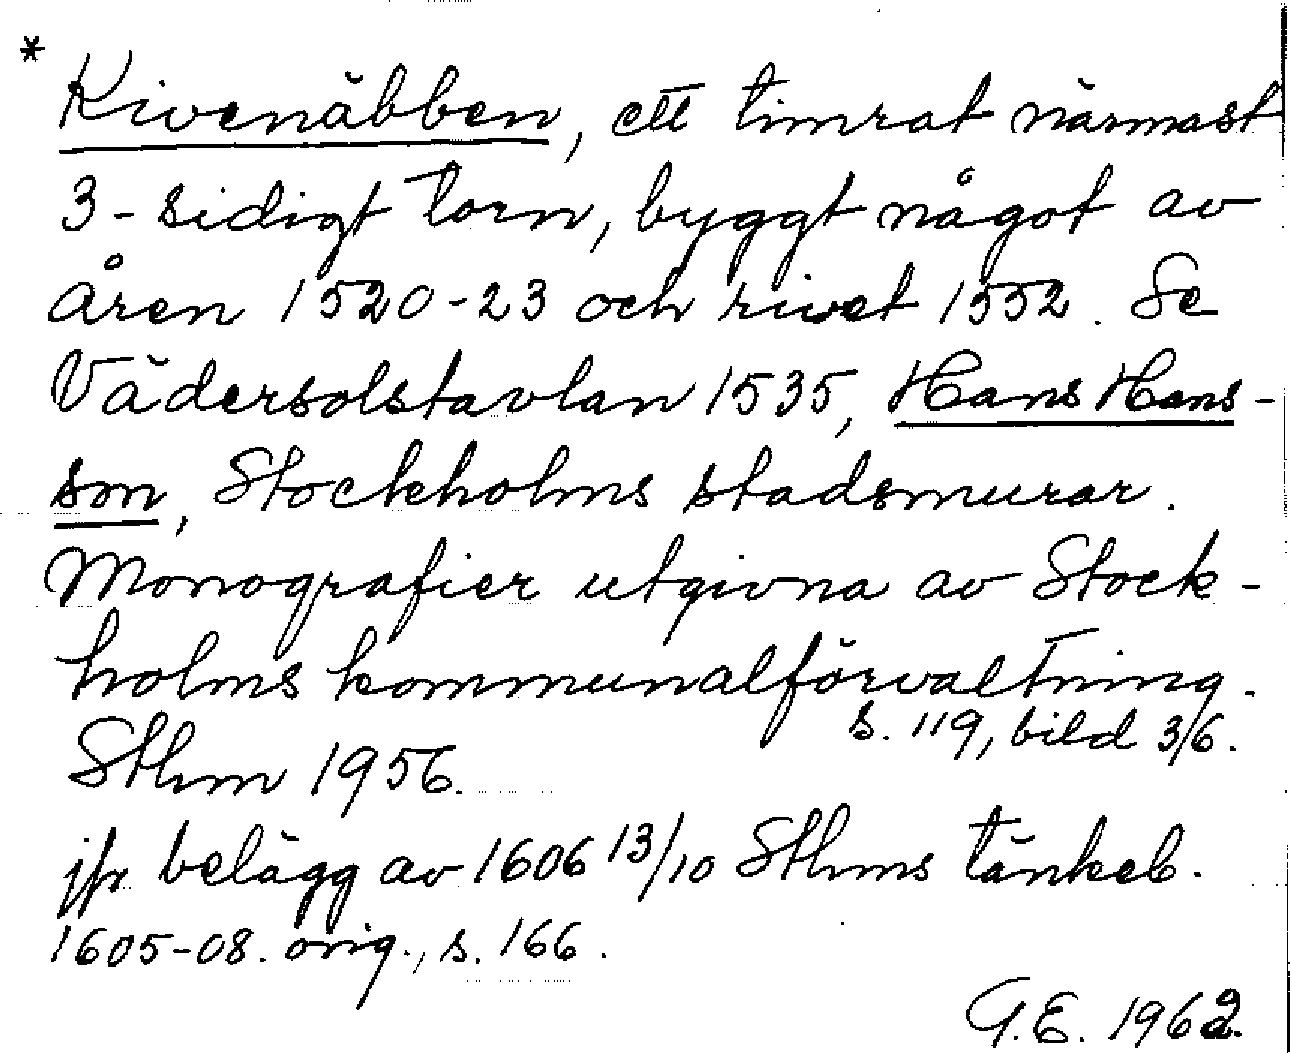 * Kivenäbben, ett timrat närmast
3-sidigt torn, byggt något av
åren 1520-23 och rivet 1552. Se
Vädersolstavlan 1535, Hans Hans-
son, Stockholms stadsmurar.
Monografier utgivna av Stock-
holms kommunalförvaltning.
s. 119, bild 3/6.
Sthm 1956.
jfr belägg av 1606 13/10 Sthms tänkeb.
1605-08. orig., s. 166.
G.E. 1962.